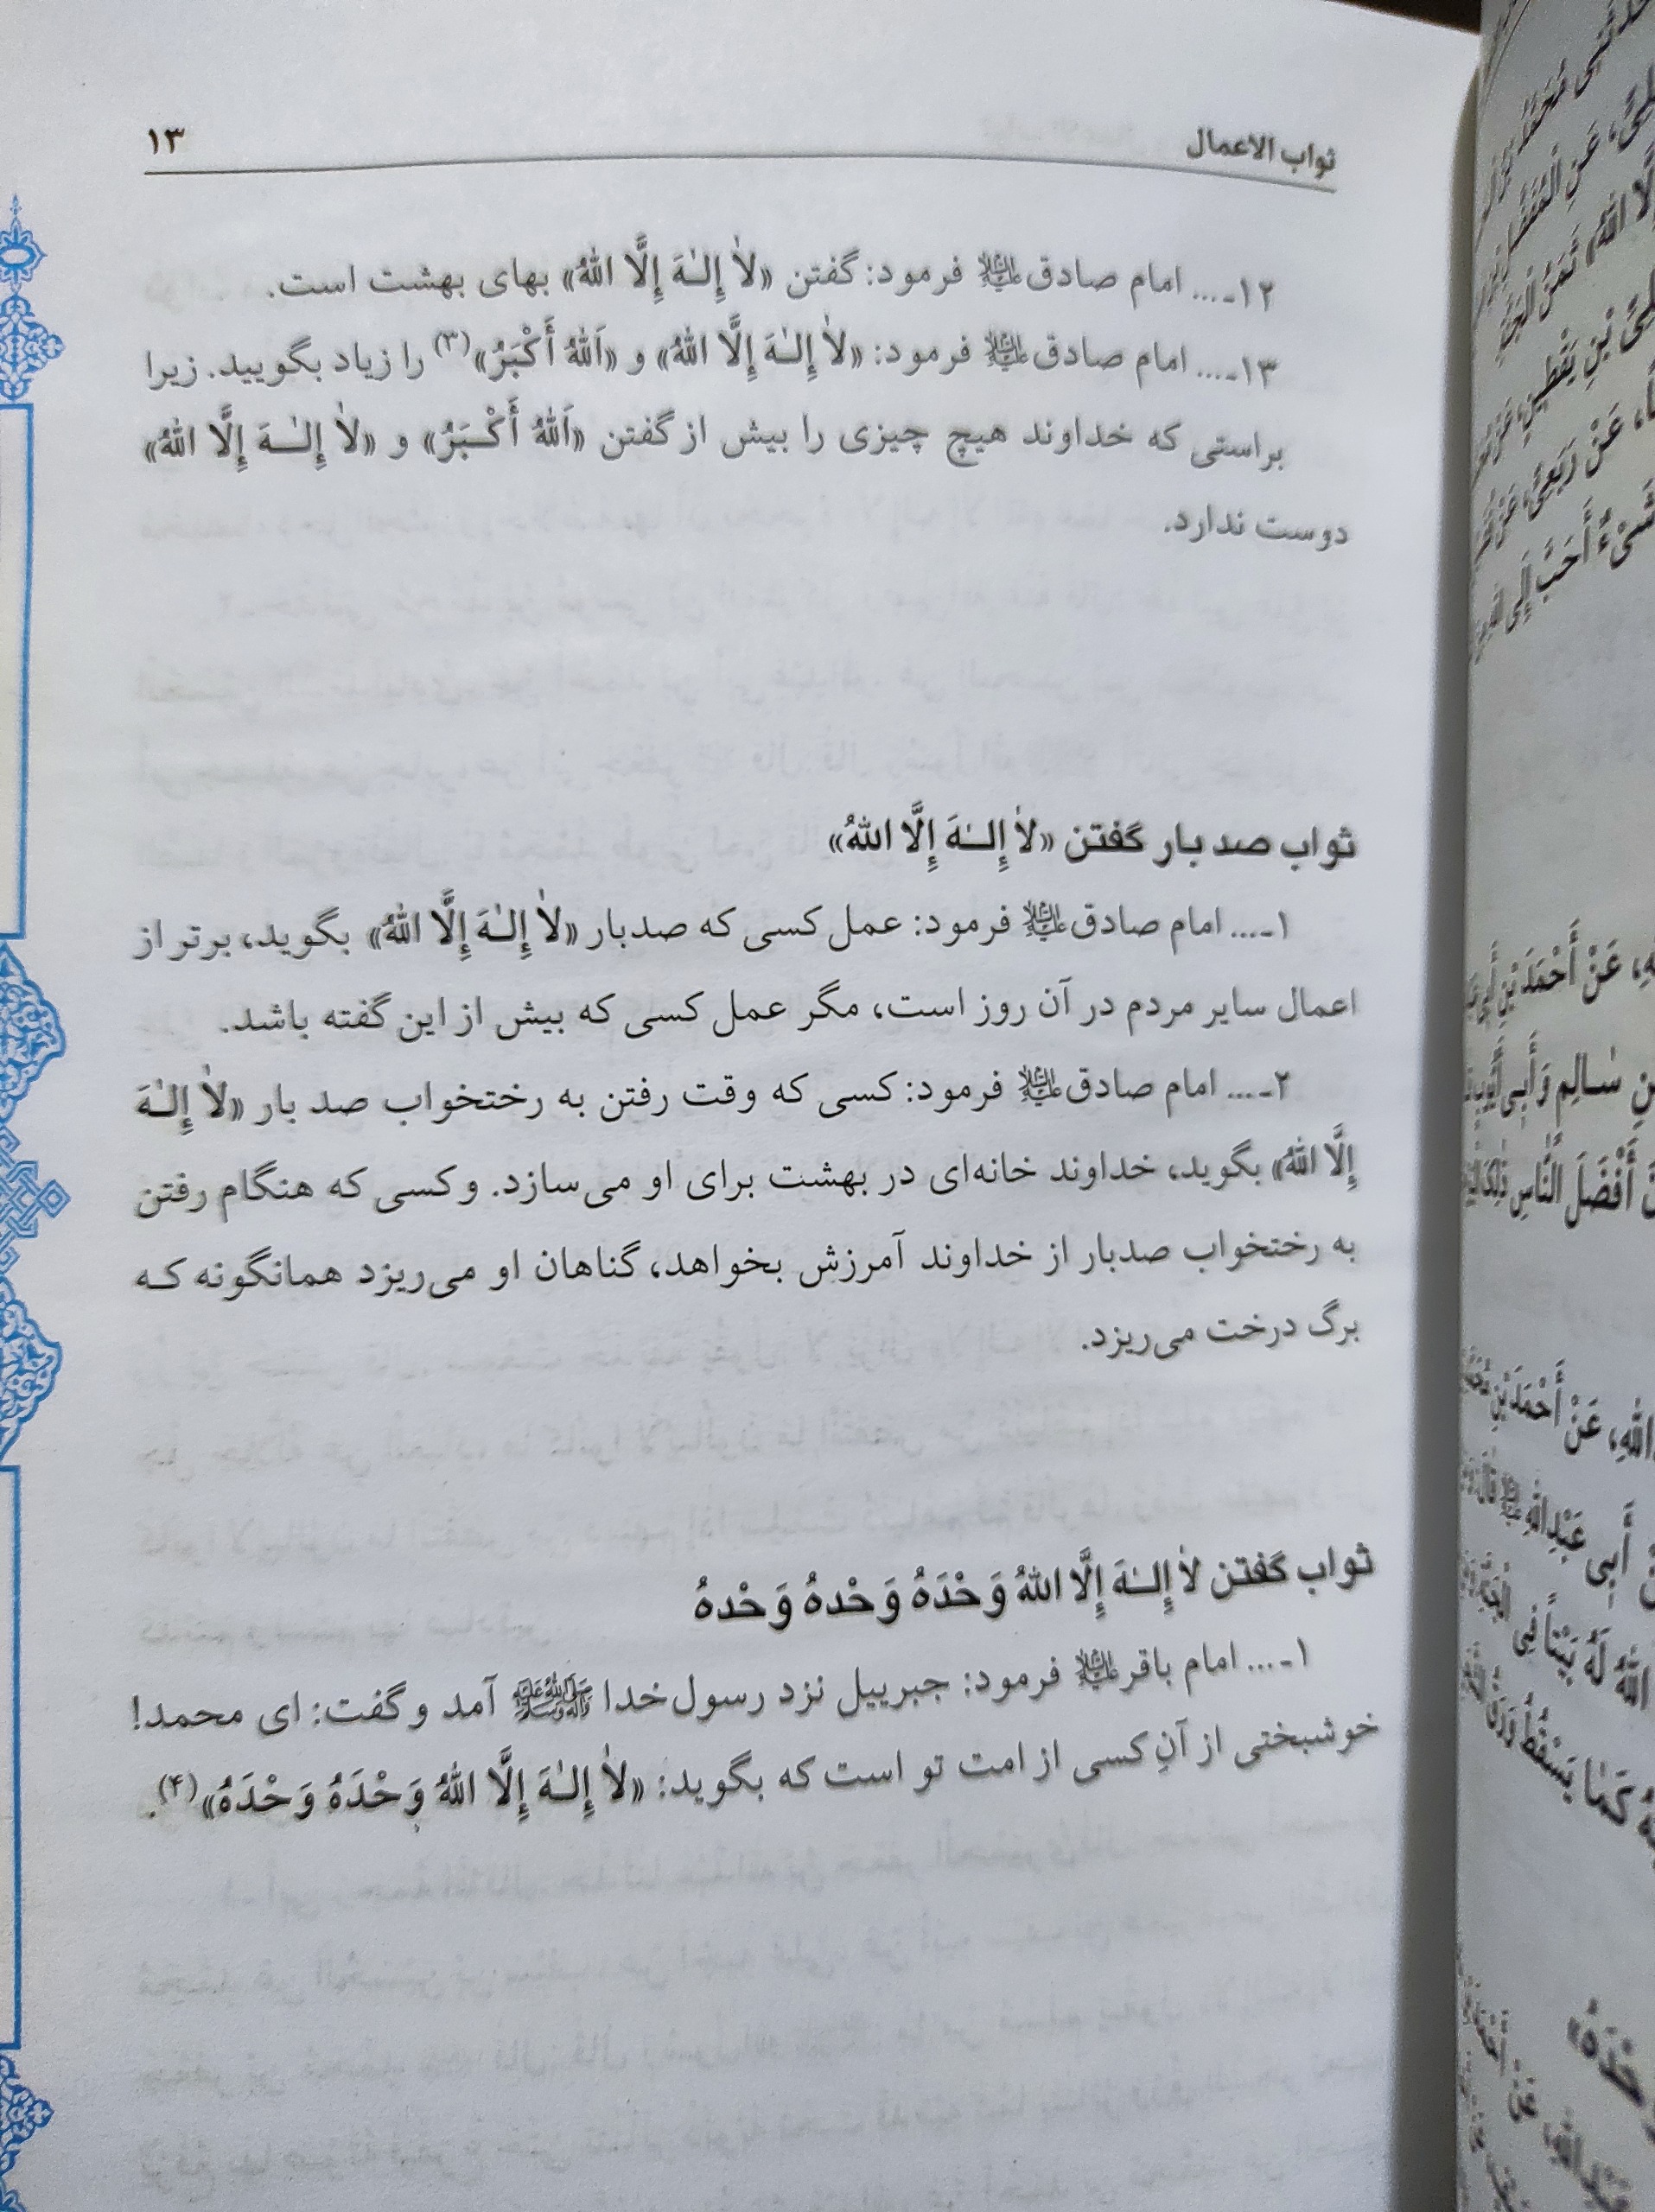 ثواب الاعمال
۱۳
۱۲ـ... امام صادق علیه‌السلام فرمود: گفتن «لاٰ إِلـٰهَ إِلَّا اللهُ» بهای بهشت است.
۱۳ـ... امام صادق علیه‌السلام فرمود: «لاٰ إِلـٰهَ إِلَّا اللهُ» و «اَللهُ أَكْبَرُ»(۳) را زیاد بگویید. زیرا
براستی که خداوند هیچ چیزی را بیش از گفتن «اَللهُ أَكْبَرُ» و «لاٰ إِلـٰهَ إِلَّا اللهُ»
دوست ندارد.
ثواب صد بار گفتن «لاٰ إِلـٰهَ إِلَّا اللهُ»
۱ـ... امام صادق علیه‌السلام فرمود: عمل کسی که صدبار «لاٰ إِلـٰهَ إِلَّا اللهُ» بگوید، برتر از
اعمال سایر مردم در آن روز است، مگر عمل کسی که بیش از این گفته باشد.
۲ـ... امام صادق علیه‌السلام فرمود: کسی که وقت رفتن به رختخواب صد بار «لاٰ إِلـٰهَ
إِلَّا اللهُ» بگوید، خداوند خانه‌ای در بهشت برای او می‌سازد. و کسی که هنگام رفتن
به رختخواب صدبار از خداوند آمرزش بخواهد، گناهان او می‌ریزد همانگونه که
برگ درخت می‌ریزد.
ثواب گفتن لاٰ إِلـٰهَ إِلَّا اللهُ وَحْدَهُ وَحْدهُ وَحْدهُ
۱ـ... امام باقر علیه‌السلام فرمود: جبرییل نزد رسول خدا ﷺ آمد و گفت: ای محمد!
خوشبختی از آنِ کسی از امت تو است که بگوید: «لاٰ إِلـٰهَ إِلَّا اللهُ وَحْدَهُ وَحْدَهُ»(۴).
عَنْ أَحْمَدَ بْنِ
سٰالِمٍ وَ أَبِی
أَفْضَلَ النَّاسِ
عَنْ أَحْمَدَ بْنِ
أَبِی عَبْدِاللهِ
اللهُ لَهُ بَیْتاً فِی
كَمٰا یَسْقُطُ وَرَقُ